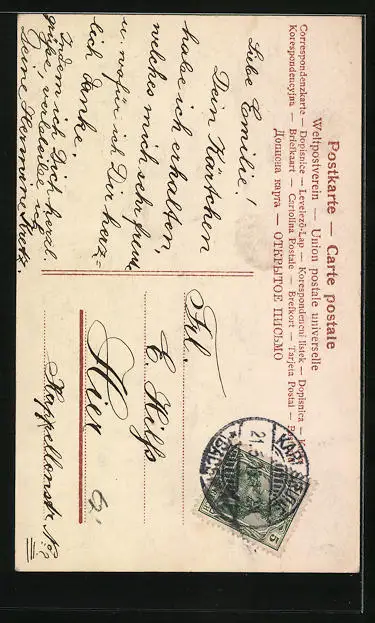 Postkarte — Carte postale
Weltpostverein — Union postale universelle
Correspondenzkarte — Dopisnice — Levelező-Lap — Korespondencni listek — Dopisnica —
Korespondencyjna — Briefkaart — Cartolina Postale — Brefkort — Tarjeta Postal —
Дописна карта — ОТКРЫТОЕ ПИСЬМО
Liebe Emilie!
Dein Kärtchen
habe ich erhalten,
welches mich sehr freute
u. wofür ich Dir herz=
lich danke.
Indem ich Dich herzl.
grüße, verbleibe ich
Deine Hermine
Frl.
E. Helfs
Hier
KARLSRUHE
21.
(BADEN)
5